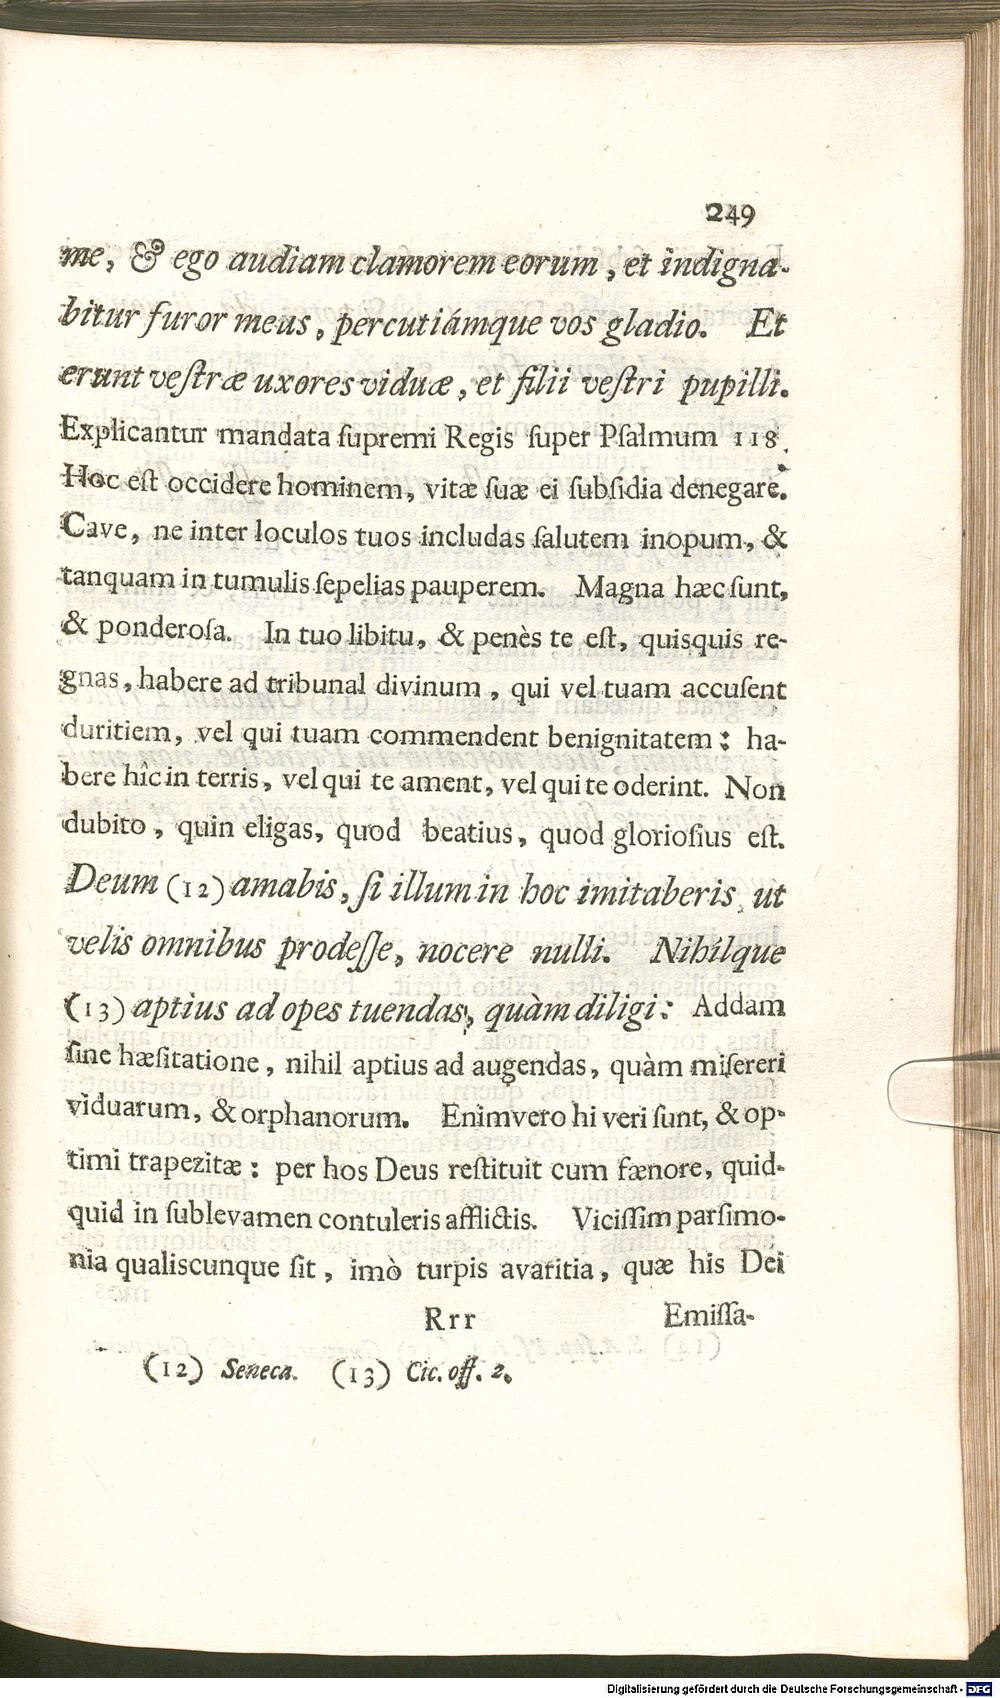 249
me, & ego audiam clamorem eorum, et indigna-
bitur furor meus, percutiámque vos gladio. Et
erunt veſtræ uxores viduæ, et filii veſtri pupilli.
Explicantur mandata ſupremi Regis ſuper Pſalmum 118.
Hoc eſt occidere hominem, vitæ ſuæ ei ſubſidia denegare.
Cave, ne inter loculos tuos includas ſalutem inopum, &
tanquam in tumulis ſepelias pauperem. Magna hæc ſunt,
& ponderoſa. In tuo libitu, & penès te eſt, quisquis re-
gnas, habere ad tribunal divinum, qui vel tuam accuſent
duritiem, vel qui tuam commendent benignitatem: ha-
bere hîc in terris, vel qui te ament, vel qui te oderint. Non
dubito, quin eligas, quod beatius, quod glorioſius eſt.
Deum (12) amabis, ſi illum in hoc imitaberis, ut
velis omnibus prodeſſe, nocere nulli. Nihilque
(13) aptius ad opes tuendas, quàm diligi: Addam
ſine hæſitatione, nihil aptius ad augendas, quàm miſereri
viduarum, & orphanorum. Enimvero hi veri ſunt, & op-
timi trapezitæ: per hos Deus reſtituit cum fænore, quid-
quid in ſublevamen contuleris afflictis. Viciſſim parſimo-
nia qualiscunque ſit, imò turpis avaritia, quæ his Dei
Rrr Emiſſa-
(12) Seneca. (13) Cic. off. 2.
Digitalisierung gefördert durch die Deutsche Forschungsgemeinschaft - DFG